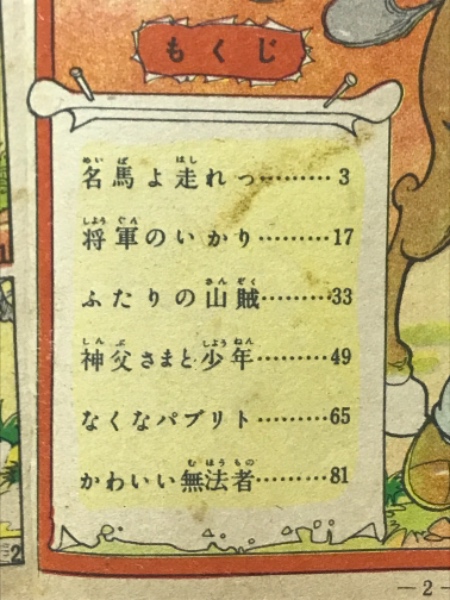 もくじ
名馬よ走れっ………3
将軍のいかり………17
ふたりの山賊………33
神父さまと少年………49
なくなパブリト………65
かわいい無法者………81
—2—